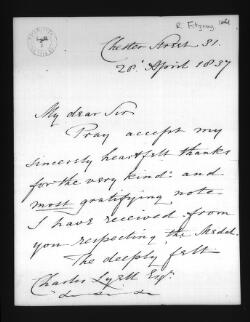 R. Fitzroy
Chester Street 31.
28 April 1837
My dear Sir
Pray accept my
sincerely heartfelt thanks
for the very kind: and
most gratifying note
I have received from
you respecting the Medal.
The deeply felt
Charles Lyell Esqr.